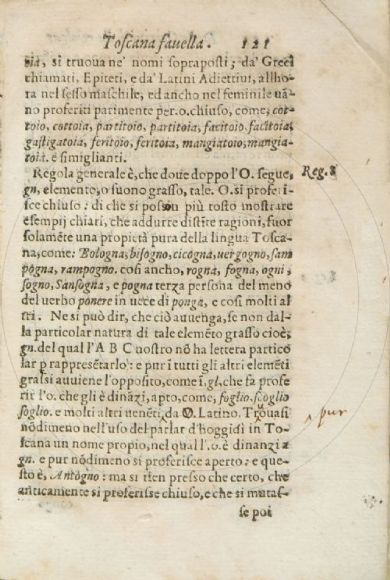 Toscana fauella. 121
oia, si truoua ne' nomi sopraposti; da' Greci
chiamati, Epiteti, e da' Latini Adiettiui, allho-
ra nel sesso maschile, ed anche nel feminile uã-
no proferiti parimente per.o. chiuso, come, cot-
toio, cottoia, partitoio, partitoia, facitoio, facitoia,
gastigatoia, feritoio, feritoia, mangiatoio, mangia-
toia. e simiglianti.
Regola generale è, che doue doppo l'O. segue, Reg. 8
gn, elemento, o suono grasso, tale. O. si proferi-
sce chiuso: di che si possou più tosto mostrare
esempij chiari, che addurre distĩte ragioni, fuor
solamẽte una propietà pura della lingua Tosca-
na; come: Bologna, bisogno, cicogna, uergogno, sam
pogna, rampogno. così ancho, rogna, fogna, ogni,
sogno, Sansogna, e pogna terza persona del meno
del uerbo ponere in uece di ponga, e così molti al
tri. Ne si può dir, che ciò auuenga, se non dal-
la particolar natura di tale elemẽto grasso cioè,
gn. del qual l'A B C nostro nõ ha lettera partico
lar p rappresẽtarlo: e pur ĩ tutti gli altri elemẽti
grassi auuiene l'opposito, come ĩ gl, che fa profe
rir l'o. che gli è dinãzi, apto, come, foglio. scoglio
soglio. e molti altri uenẽti da O. Latino. Trouasi
nõdimeno nell'uso del parlar d'hoggidì in To-
scana un nome propio, nel qual l'.o. è dinanzi a
gn. e pur nõdimeno si proferisce aperto: e que-
sto è, Antogno: ma si tien presso che certo, che
anticamente si proferisse chiuso, e che si mutas-
se poi
pur